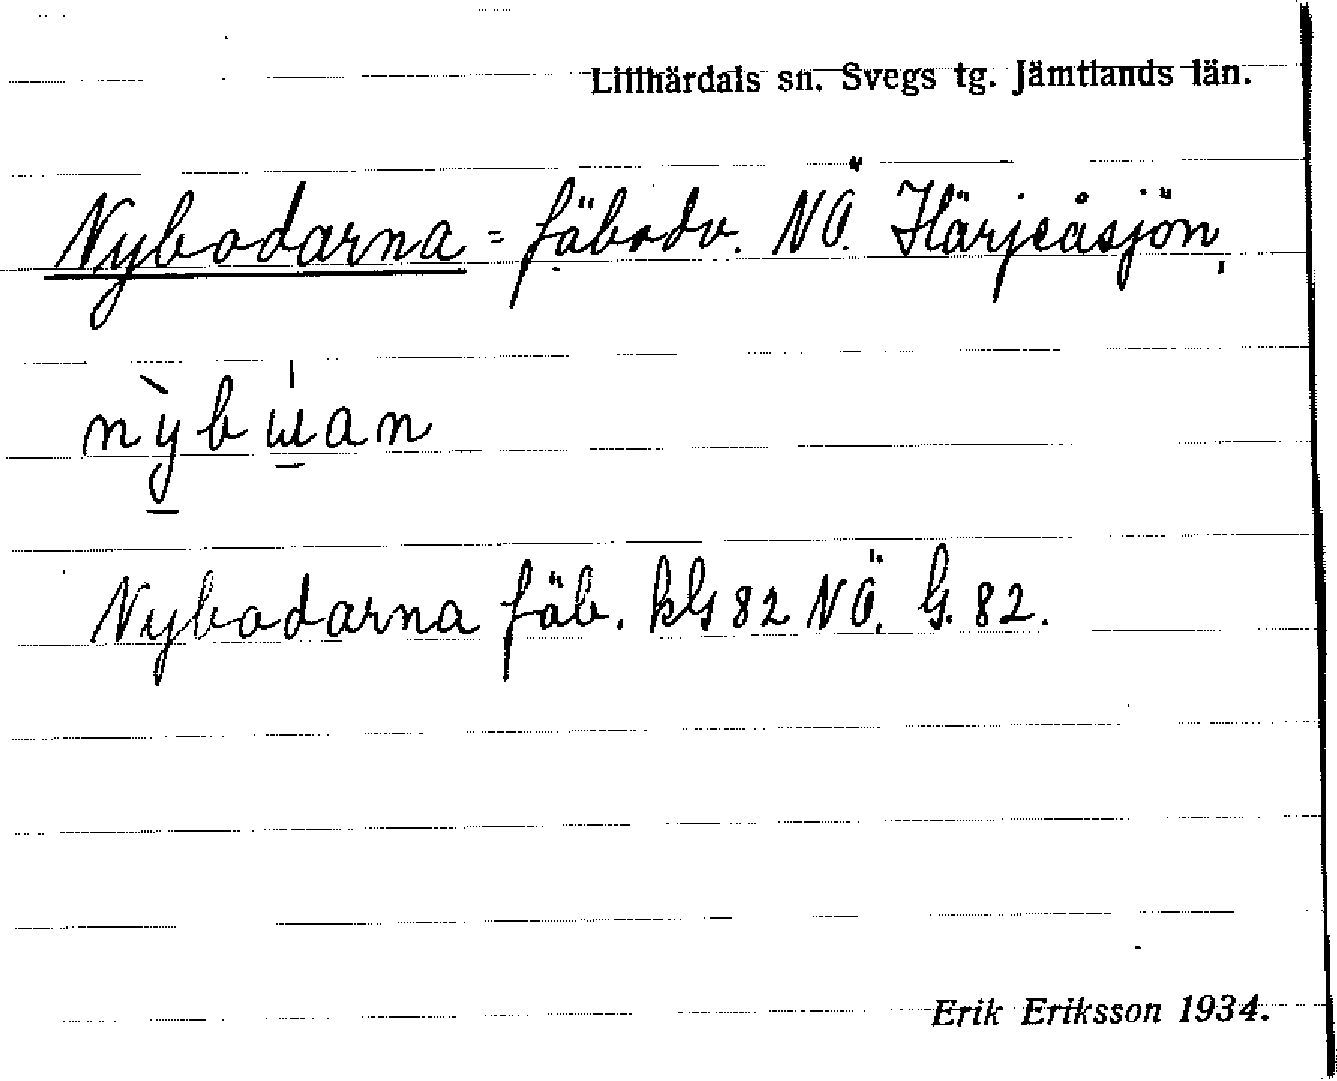 Lillhärdals sn. Svegs tg. Jämtlands län.
Nybodarna = fäbodv. NÖ. Härjeåsjön,
Nybodarna fäb. kG 82 NÖ. G. 82.
Erik Eriksson 1934.